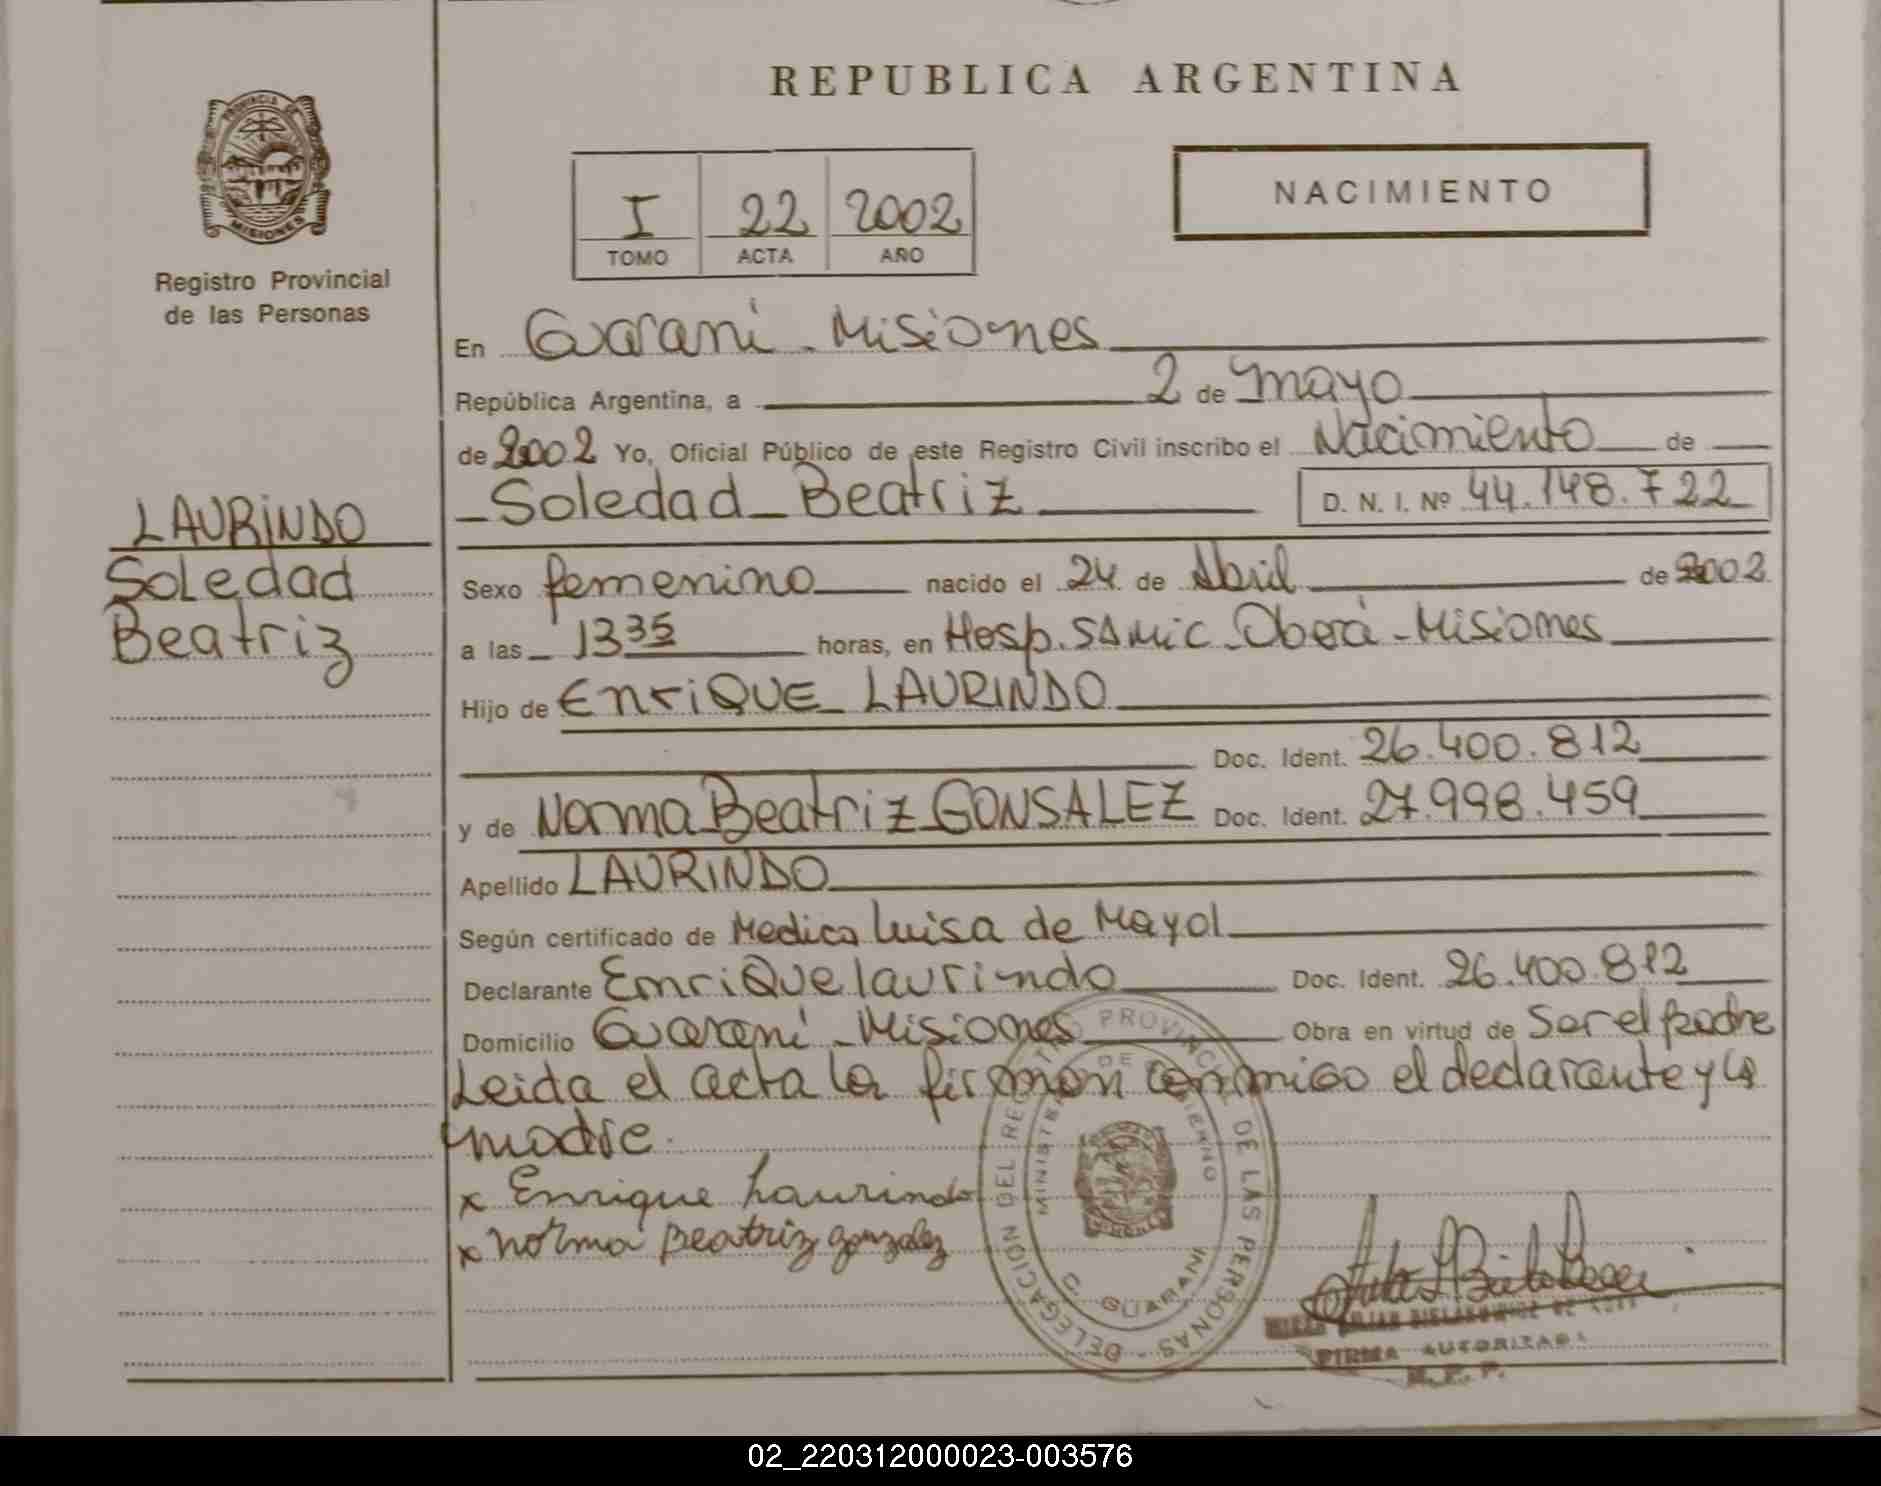 REPUBLICA ARGENTINA
PROVINCIA DE
MISIONES
Registro Provincial
de las Personas
I 22 2002
TOMO ACTA AÑO
NACIMIENTO
En Guaraní - Misiones
República Argentina, a 2 de mayo
de 2002 Yo, Oficial Público de este Registro Civil inscribo el Nacimiento de
Soledad Beatriz D. N. I. Nº 44.148.722
LAURINDO
Soledad
Beatriz
Sexo femenino nacido el 24 de Abril de 2002
a las 13 35 horas, en Hosp. SAMIC - Oberá - Misiones
Hijo de Enrique LAURINDO
Doc. Ident. 26.400.812
y de Norma Beatriz GONSALEZ Doc. Ident. 27.998.459
Apellido LAURINDO
Según certificado de Medica Luisa de Mayol
Declarante Enrique laurindo Doc. Ident. 26.400.812
Domicilio Guaraní - Misiones Obra en virtud de Ser el padre
Leida el acta la firman conmigo el declarante y la
madre.
x Enrique Laurindo
x Norma Beatriz gonzalez
DELEGACION DEL REGISTRO PROVINCIAL DE LAS PERSONAS
MINISTERIO DE GOBIERNO
C. GUARANI
FIRMA AUTORIZADA
R.P.P.
02_220312000023-003576